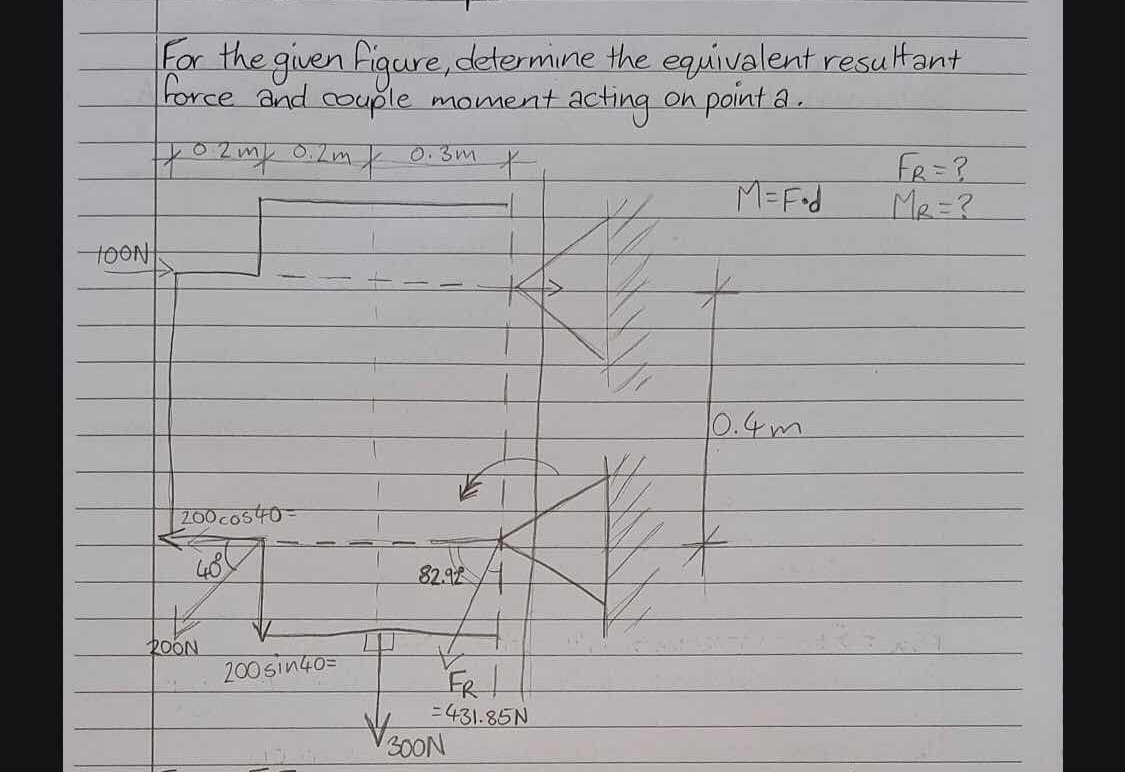 For the given figure, determine the equivalent resultant
force and couple moment acting on point a.
0.2m 0.2m 0.3m
FR=?
M=F•d
MR=?
100N
0.4m
200cos40=
40°
82.92°
200N
200sin40=
FR
=431.85N
300N